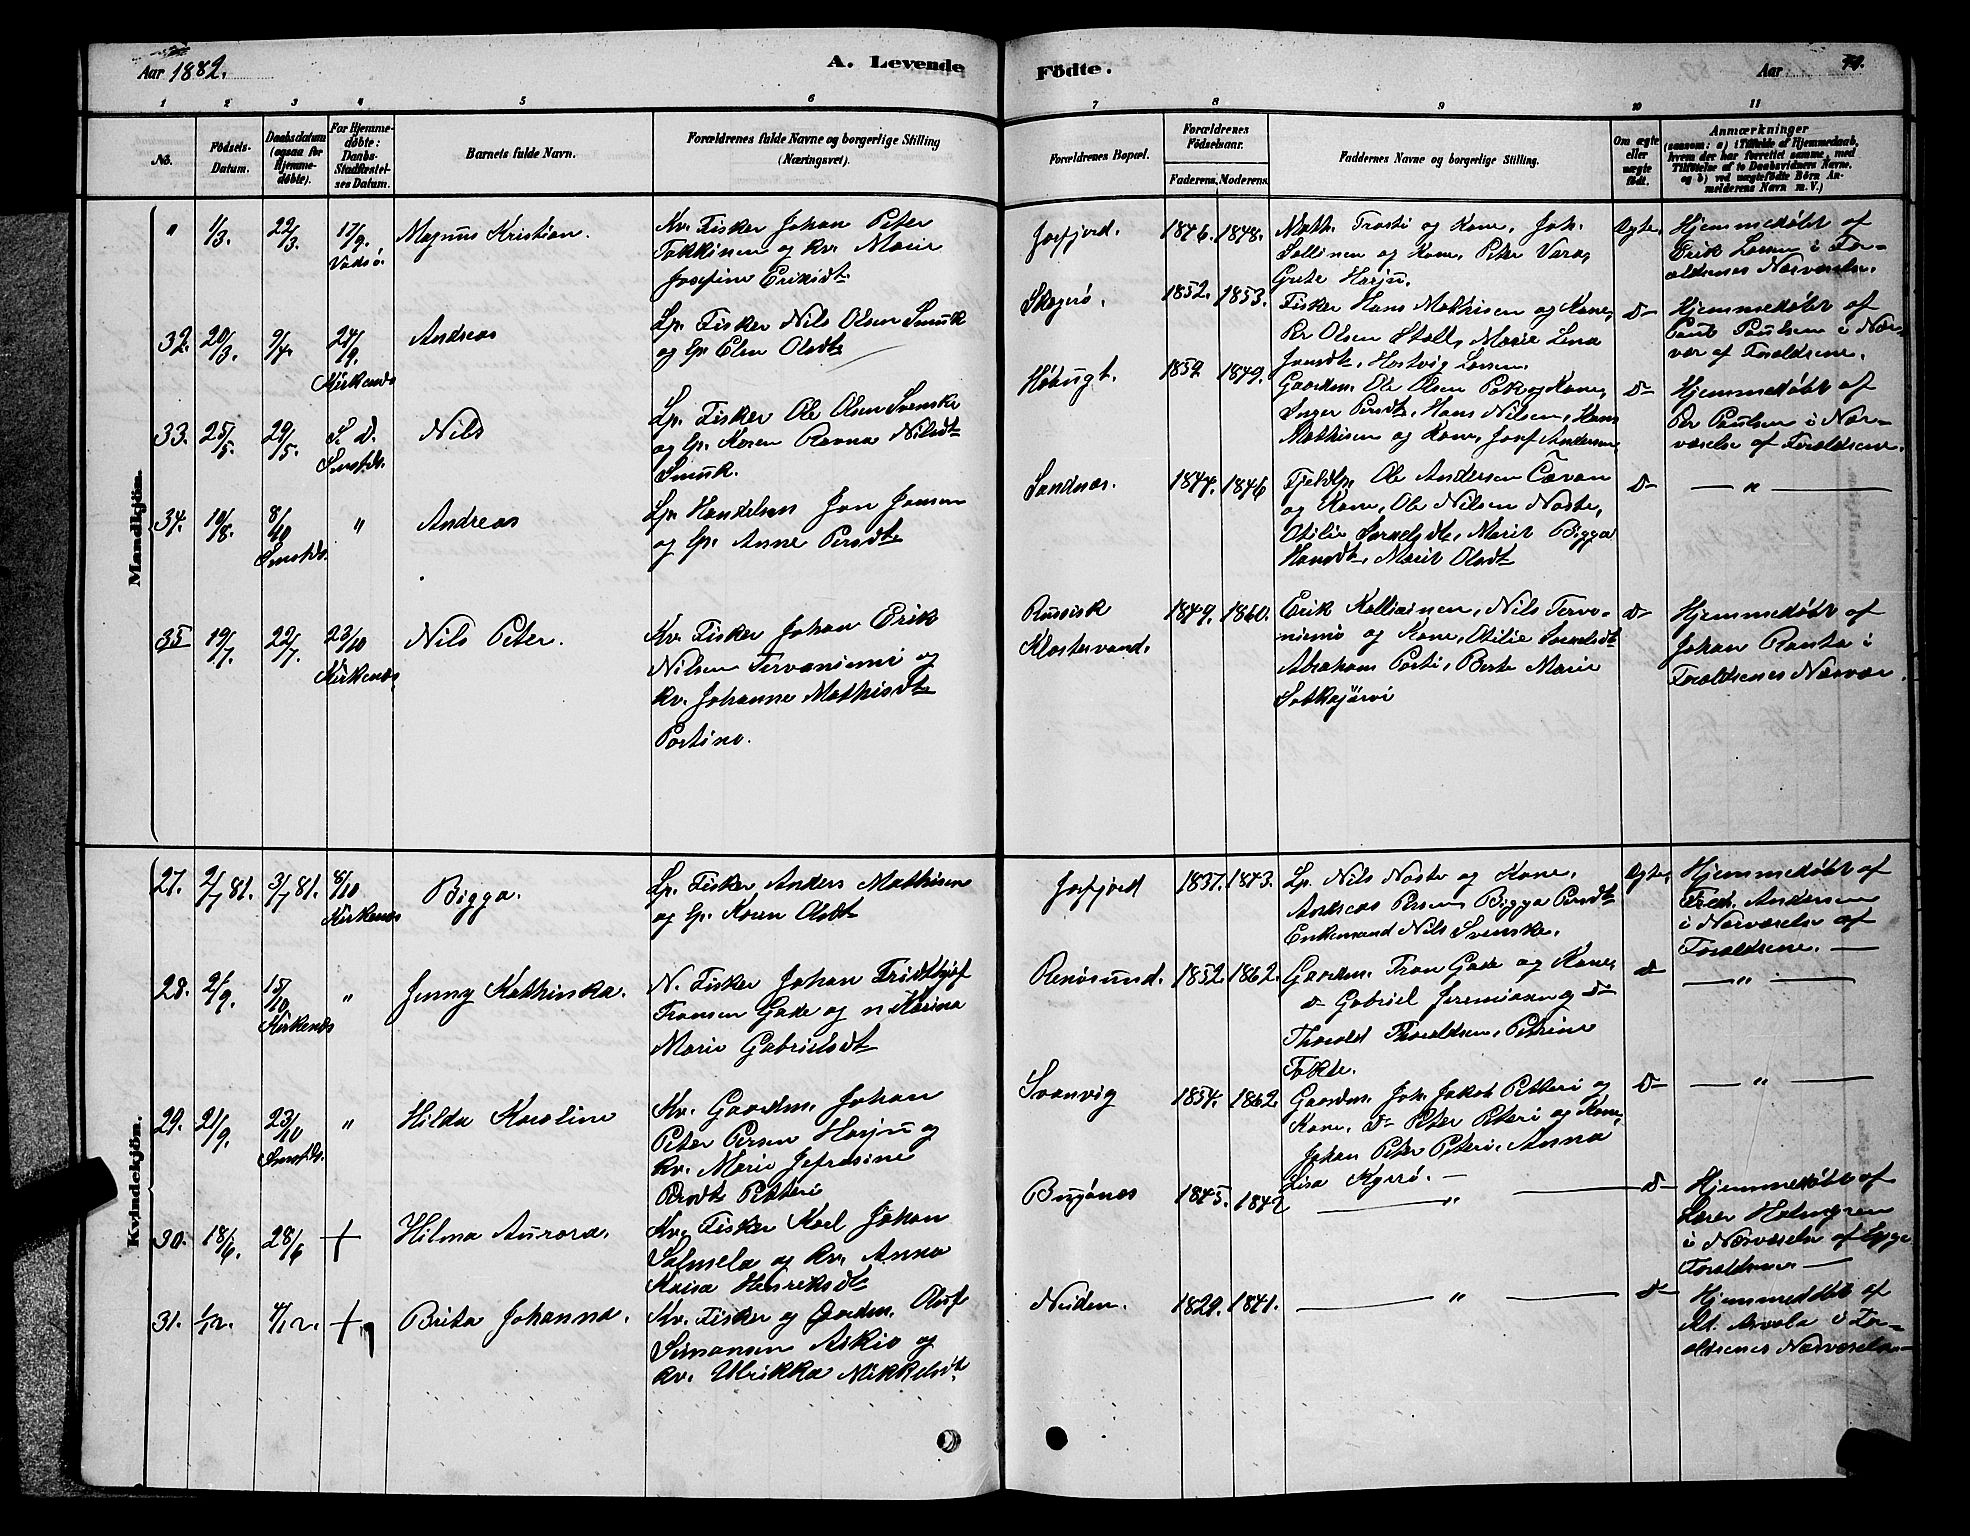 Aar 1882.
A. Levende
Födte.
Aar
1 2 3 4 5 6 7 8 9 10 11
No.
Födsels-
Datum.
Daabsdatum
(ogsaa for
Hjemme-
døbte).
For Hjemme-
døbte:
Daabs-
Stadfæstel-
ses Datum.
Barnets fulde Navn.
Forældrenes fulde Navne og borgerlige Stilling
(Næringsvei).
Forældrenes Bopæl.
Forældrenes
Födselsaar.
Faderens. Moderens.
Faddernes Navne og borgerlige Stilling.
Om ægte
eller
uægte
födt.
Anmærkninger
(saasom: a) i Tilfælde af Hjemmedaab,
hvem der har forrettet samme, med
Tilföielse af to Daabsvidners Navne,
og b) ved uægtefödte Börn An-
melderens Navn m. V.)
Mandkjön.
" 1/3. 22/3. 17/9. Vadsø
Magnus Kristian.
Kv. Fisker Johan Peter
Takkinen og kv. Marie
Josefine Eriksdt.
Jarfjord.
1846. 1848.
Math. Trasti og Kone, Joh.
Sallinen og Kone, Peter Vara,
Grete Harju.
Ægte.
Hjemmedøbt af
Erik Larsen i For-
ældrenes Nærværelse.
32. 20/3. 9/4. 24/9. Kirkenæs
Andreas
Lp. Fisker Nils Olsen Smuk
og lp. Elen Olsdt.
Skogerø.
1852. 1853.
Fisker Hans Mathisen og Kone,
Per Olsen Stall, Marie Lena
Jonsdt., Hartvig Larsen.
d-
Hjemmedøbt af
Poul Poulsen i Nær-
vær af Forældrene.
33. 25/5. 29/5. S. D. Smstds.
Nils
Lp. Fisker Ole Olsen Svenske
og lp. Karen Ravna Nilsdt.
Smuk.
Høbugt.
1859 1849.
Gaardm. Ole Olsen Pak og Kone,
Inger Persdt., Hans Nilsen, Hans
Mathisen og Kone, Josef Andersen,
d-
Hjemmedøbt af
Per Paulsen i Nær-
værelse af Forældrene.
34. 19/8. 8/10 Smstds. "
Andreas
Lp. Handelsm. Jon Jonsen
og lp. Anne Persdt.
Sandnæs.
1844. 1846
Fjeldlp. Ole Andersen Cavan
og Kone, Ole Nilsen Naste,
Otilie Samelsdt., Marit Bigga
Hansdt., Marit Olsdt.
d-
— " —
35 19/7. 22/7. 23/10 Kirkenæs
Nils Peter.
Kv. Fisker Johan Erik
Nilsen Tervaniemi og
kv. Johanne Mathisdt.
Portino.
Russisk
Klostervand.
1849. 1860.
Erik Kalliainen, Nils Terva-
niemi og Kone, Otilie Samelsdt.
Abraham Porti, Berte Marie
Satkajärvi
d-
Hjemmedøbt af
Johan Ranta i
Forældrenes Nærvær.
Kvindekjön.
27. 2/7 81. 3/7 81. 8/10 Kirkenæs
Bigga.
Lp. Fisker Anders Mathisen
og lp. Karen Olsdt.
Jarfjord
1837. 1843.
Lp. Nils Naste og Kone,
Andreas Persen, Bigga Persdt.
Enkemand Nils Svenske.
Ægte,
Hjemmedøbt af
Fred. Andersen
i Nærværelse af
Forældrene. —
28. 2/9. 15/10 Kirkenæs "
Jenny Kathinka.
N. Fisker Johan Fridthjof
Fransen Gade og n Karina
Marie Gabrielsdt.
Renøsund.
1852. 1862.
Gaardm. Fran Gade og Kone,
d- Gabriel Jeremiasen og d-
Thorald Thoraldsen, Petrine
Fokde.
d-
— " —
29. 21/9. 23/10 Smstds. "
Hilda Karoline
Kv. Gaardm. Johan
Peter Persen Harju og
kv. Marie Jefrosine
Persdt. Petteri
Svanvig
1854. 1862.
Gaardm. Joh. Jakob Petteri og
Kone, d- Peter Peteri og Kone,
Johan Peter Peteri, Anna
Lisa Kyrrø. —
d-
— " —
30. 18/6. 28/6 +
Hilma Aurora.
Kv. Fisker Karl Johan
Salmela og kv. Anna
Kaisa Henriksdt.
Bugønæs
1845. 1842
— " —
d-
Hjemmedøbt af
Lærer Holmgren
i Nærværelse af begge
Forældrene —
31. 1/12. 4/12. +
Brita Johanna.
Kv. Fisker og Gaardm. Oluf
Simonsen Askio og
kv. Ulrikka Mikkelsdt.
Neiden.
1829. 1841.
— " —
d-
Hjemmedøbt af
At. Arvola i For-
ældrenes Nærværelse